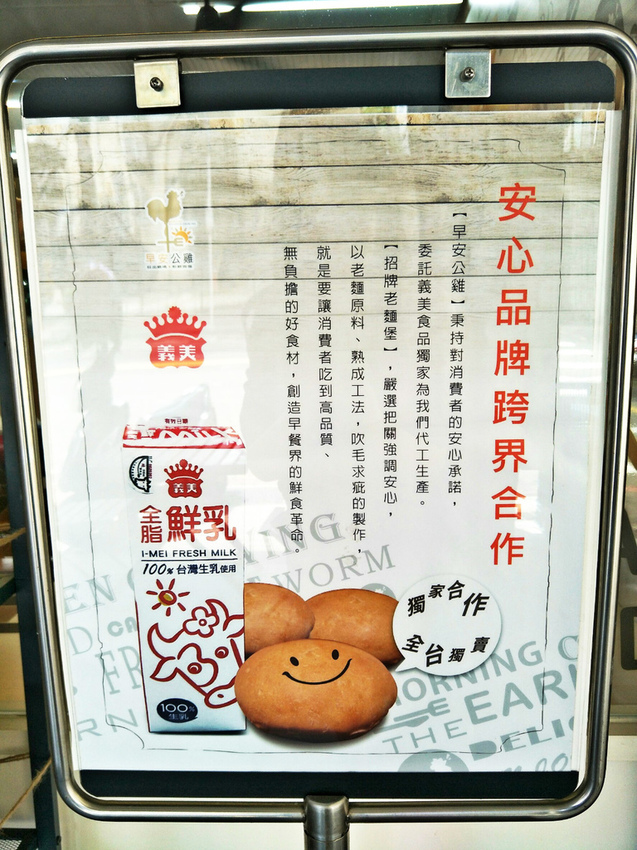 安心品牌跨界合作
【早安公雞】秉持對消費者的安心承諾，
委託義美食品獨家為我們代工生產。
【招牌老麵堡】，嚴選把關強調安心，
以老麵原料、熟成工法，吹毛求疵的製作，
就是要讓消費者吃到高品質、
無負擔的好食材，創造早餐界的鮮食革命。
早安公雞
義美
MILK
義美
全脂鮮乳
I-MEI FRESH MILK
100% 台灣生乳使用
100%
生乳
獨家合作
全台獨賣
NING
WORM
MORNING
THE EARL